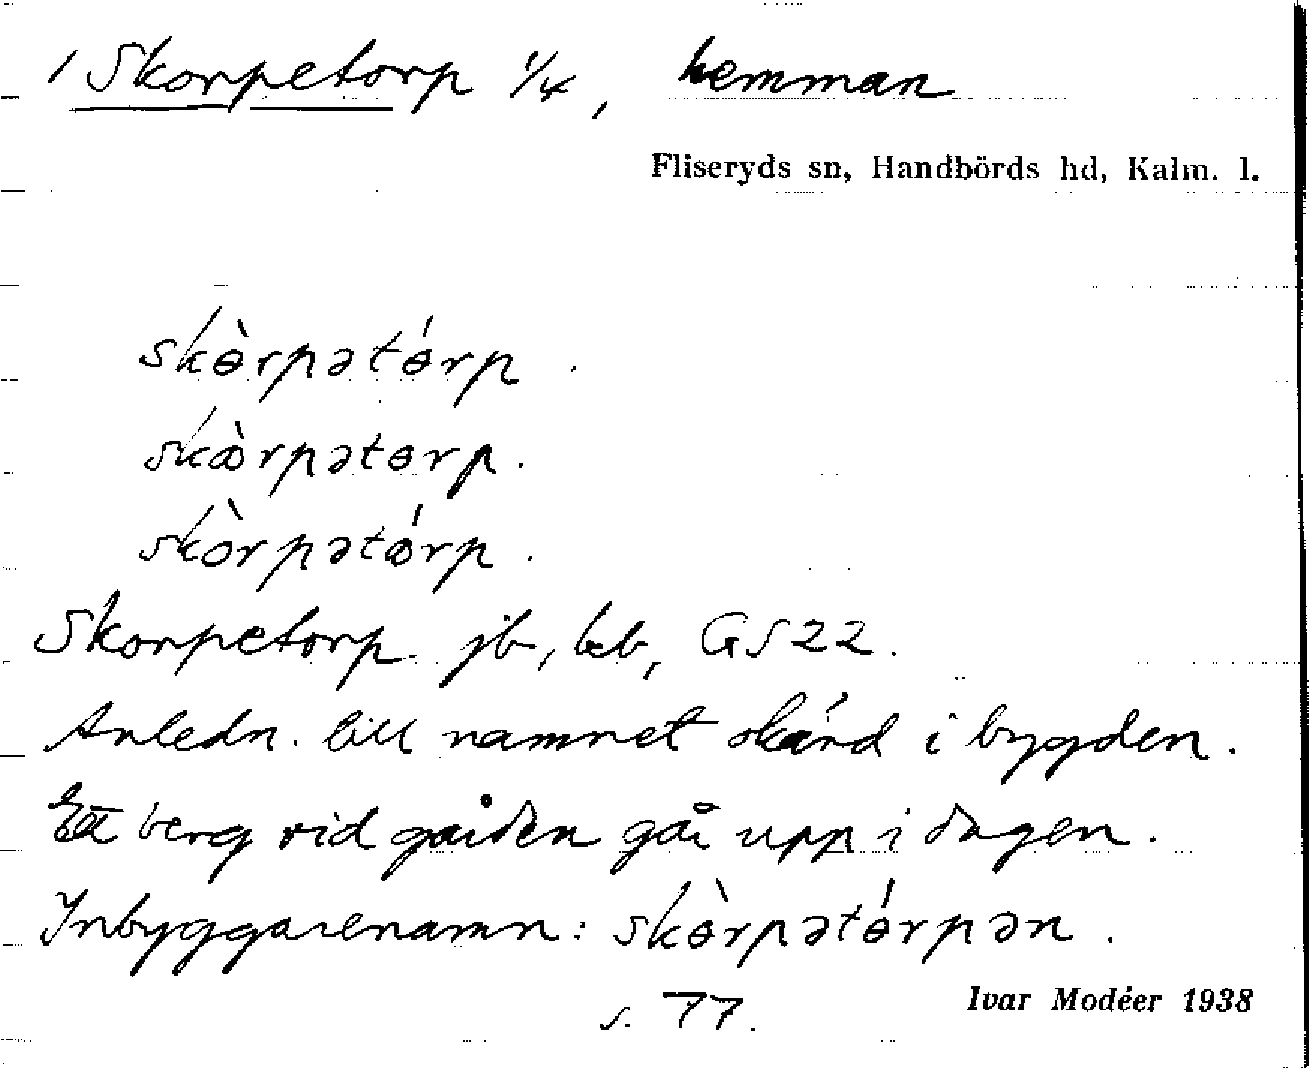 1 Skorpetorp 1/4, hemman
Fliseryds sn, Handbörds hd, Kalm. l.
skɵ̀rpətɵ́rp.
skæ̀rpətɵrp.
skòrpətǿrp.
Skorpetorp jb, kb, GS22.
Anledn. till namnet okänd i bygden.
Ett berg vid gården går upp i dagen.
Inbyggarenamn: skɵ̀rpətɵ́rpən.
s. 77.
Ivar Modéer 1938